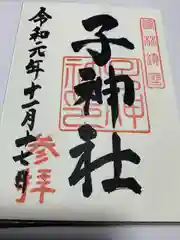 子神社
参拝
令和元年十一月十七日